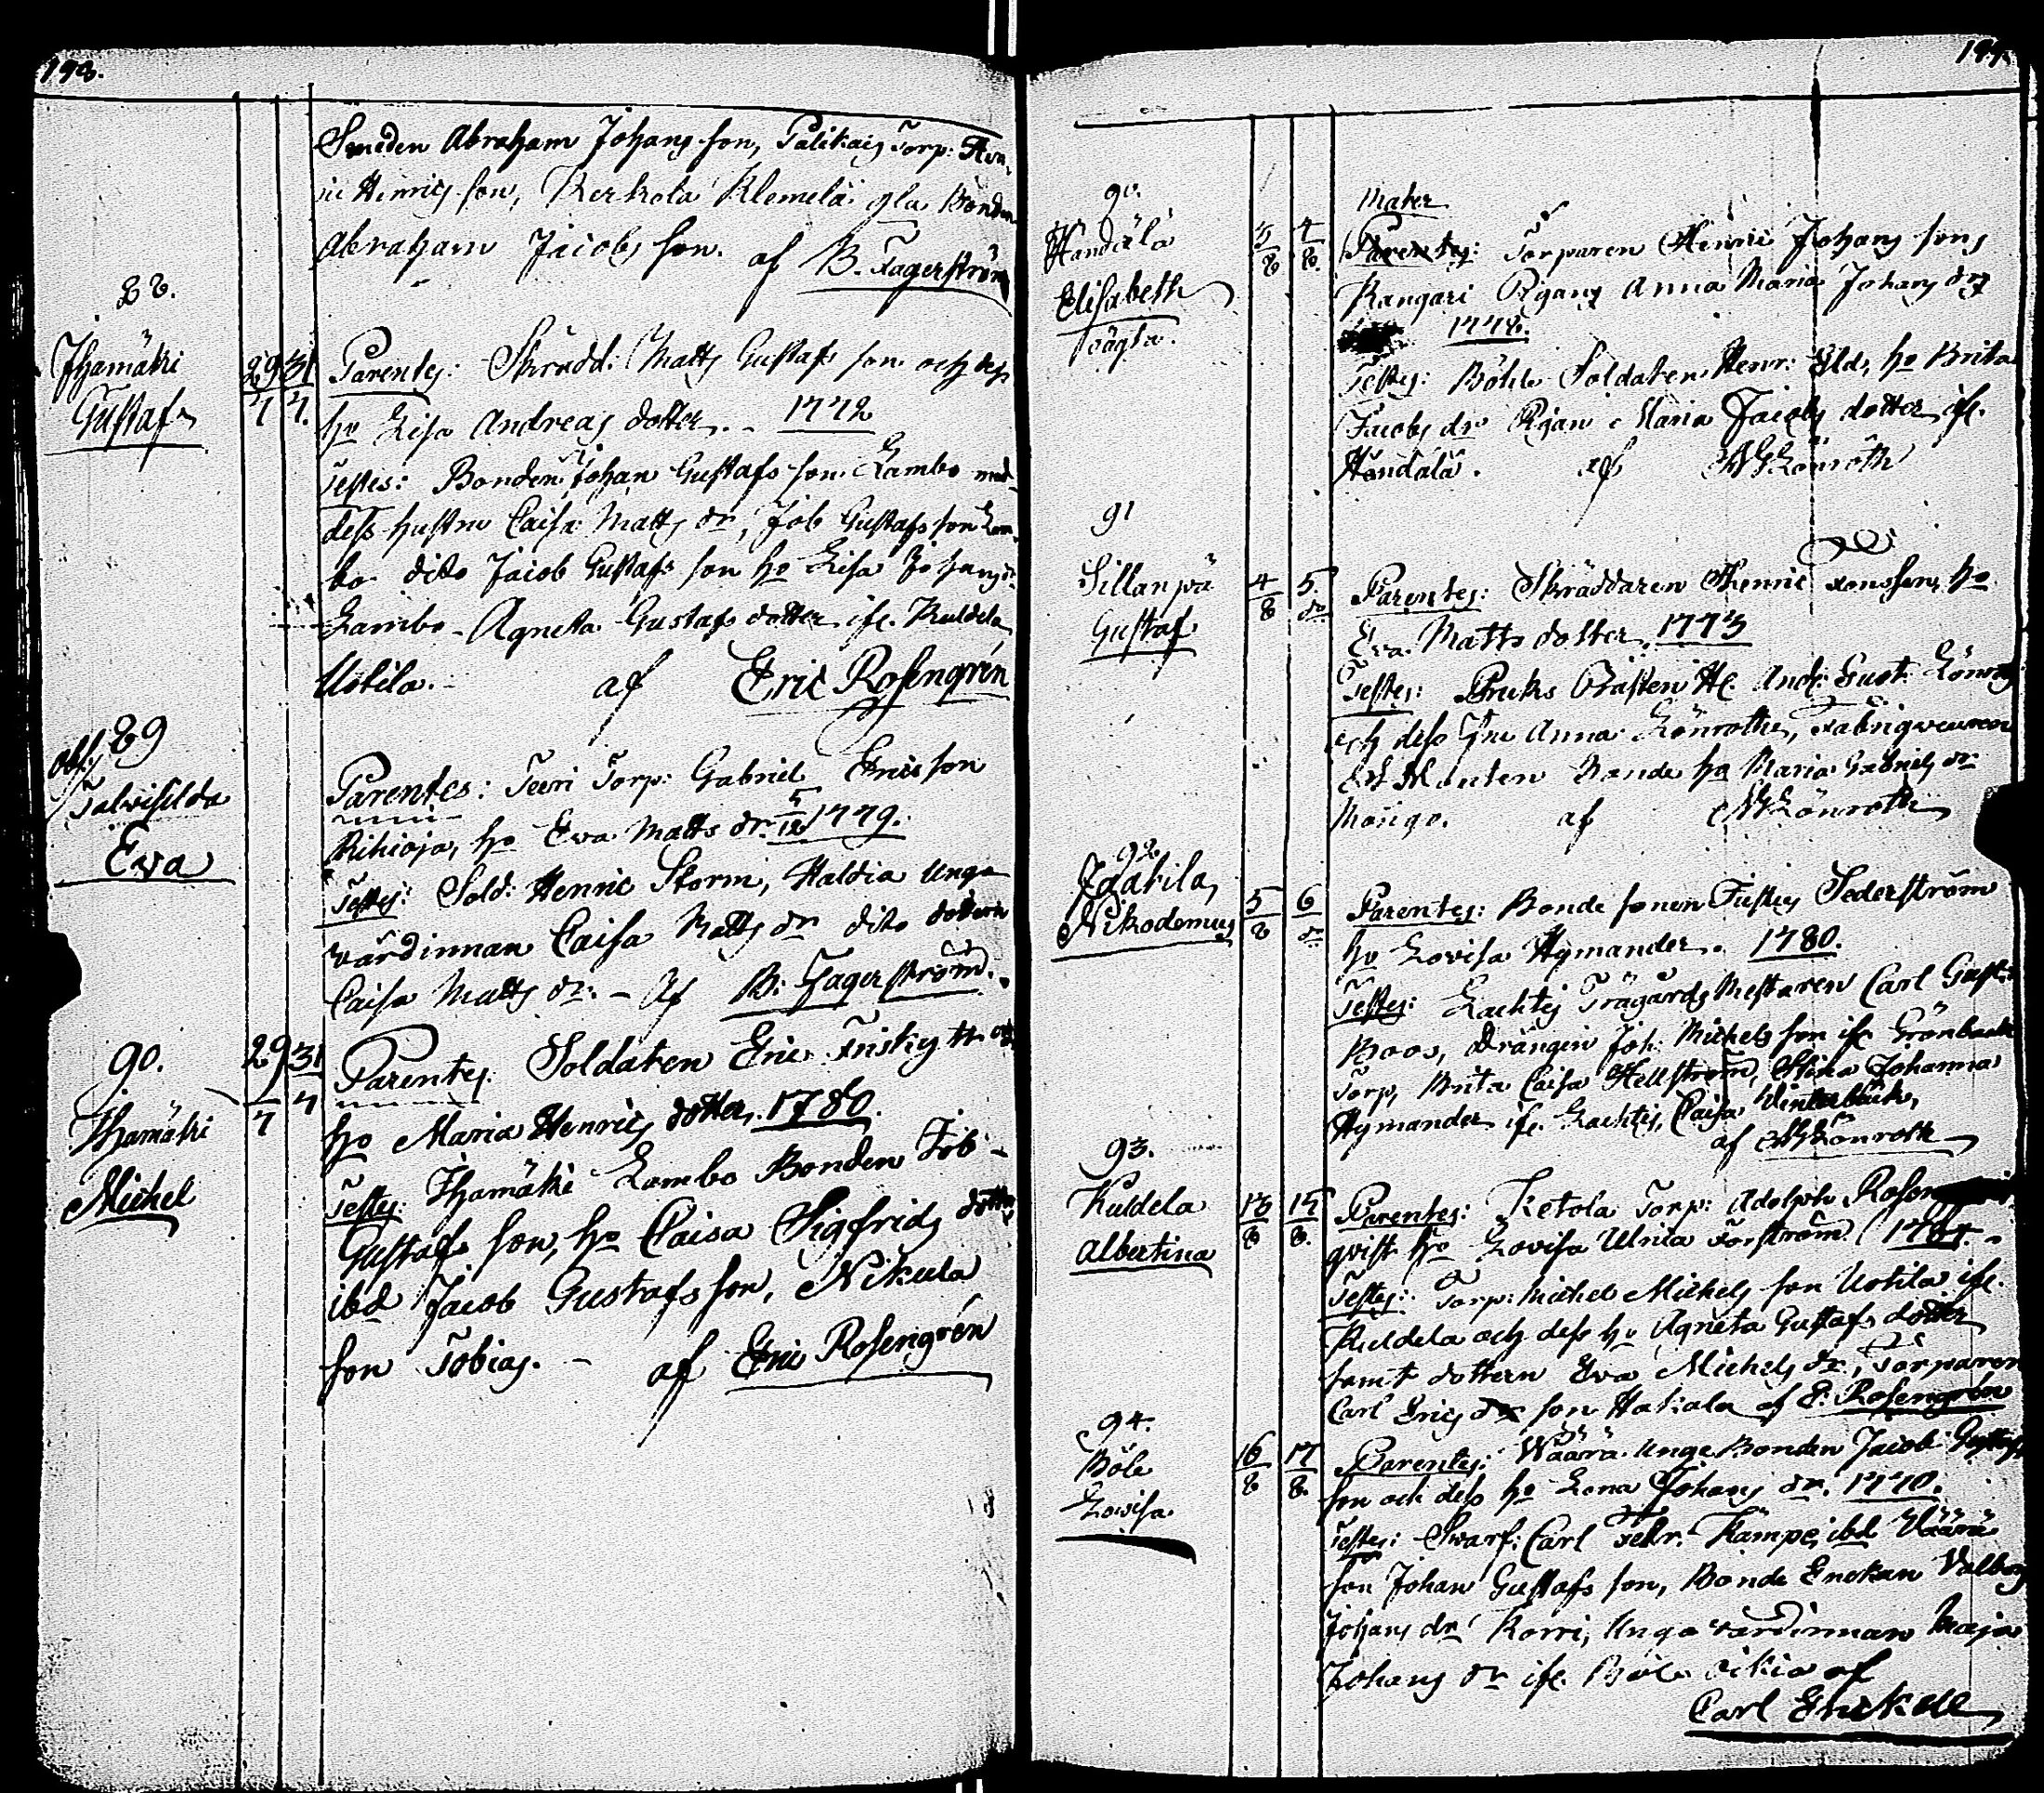 198.
Smeden Abraham Johans son, Palikais Torp:
ric Henrics son, Kerkola Klemelä gla Bonden
Abraham Jacobs son. af B. Fagerström
88.
Ihamäki
Gustaf
29 31
7 7.
Parentes: Skrädd: Matts Gustafs son och des
ho Lisa Andreas dotter. - 1772
Testes: Bonden Johan Gustafs son Lambo med
dess hustru Caisa Matts dr, Job Gustafs son Lam
bo dito Jacob Gustafs son ho Lisa Johans dr
Lambo - Agneta Gustafs dotter ifr. Kuldela
Uotila. af Eric Rosengrén
89
Talvisilda
Eva
Parentes: Teeri Torp: Gabriel Erics son
Rihioja, ho Eva Matts dr. 5/12 1779.
Testes: Sold: Henric Storm, Haldia unga
värdinnan Caisa Matts dr dito dottern
Caisa Matts dr. - Af B: Fagerström.
90.
Ihamäki
Michel
29 31
7 7
Parentes: Soldaten Eric Frisk
ho Maria Henrics dotter, 1780.
Testes: Ihamäki Lambo Bonden Job
Gustafs son, ho Caisa Sigfrids dotter
ibd Jacob Gustafs son, Nikula
son Tobias. - af Eric Rosengrén
199.
90.
Handälä
Elisabeth
oägta.
3 4
8 8.
Mater
Parentes: Torparen Henric Johans sons
Kangari Pigans Anna Maria Johans drs
1778.
Testes: Böhle Soldaten Henr: Eld, ho Brita
Jacobs dr Pigan Maria Jacobs dotter ifr.
Handälä. af Lönroth
91
Sillanpä
Gustaf
4 5.
8 do
Parentes: Skräddaren Henric Jonsson, ho
Eva Matts dotter. 1773
Testes: Bruks Prästen H. And: Gust: Lönroth
och dess Fru Anna Lönroth,
ho Maria Gabriels dr
af Lönroth
92
Jdakila,
Nikodemus
5 6
8 do
Parentes: Bonde sonen Justus Sederström
ho Lovisa Hymander. 1780.
Testes: Lachtis Trägårds Mestaren Carl Gust:
Boos, Drängen Joh: Michels son ifr Grönbacka
Torp, Brita Caisa Hellström, Stina Johanna
Hymander ifr. Lachtis, Caisa Winterbäck,
af Lönroth
93.
Kuldela
Albertina
13 15
8 8.
Parentes: Ketola Torp: Adolph Rosen
qvist ho Lovisa Ulrica Forström 1784.
Testes: Torp: Michel Michels son Uotila ifr.
Kuldela och dess ho Agneta Gustafs dotter
samt dottern Eva Michels dr, Torparen
Carl Erics son Hakala af E: Rosengrén
94.
Böle
Lovisa
16 17
8 8.
Parentes: Wäärä Unga Bonden Jacob Gustafs
son och dess ho Lena Johans dr. 1770.
Testes: Svarf: Carl Fedr. Kämpe, ibd Wäärä
son Johan Gustafs son, Bonde Enckan Valborg
Johans dr Korri, Unga värdinnan Maja
Johans dr ifr. Böle oikia af
Carl Enckell